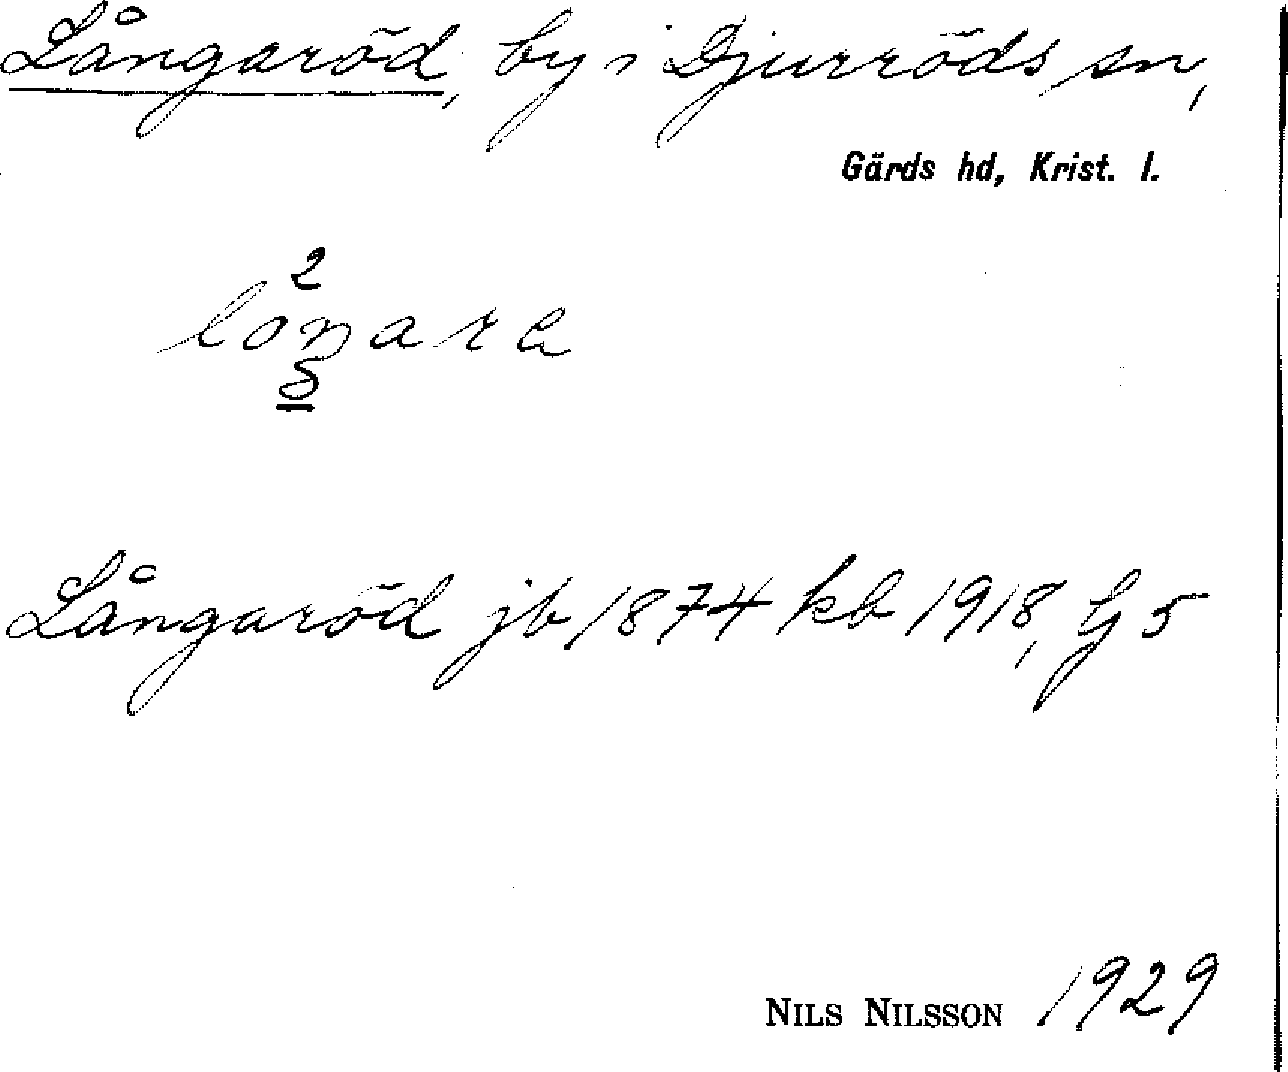 Långaröd, by i Djurröds sn,
Gärds hd, Krist. l.
Långaröd jb 1874 kb 1918, G 5
NILS NILSSON 1929